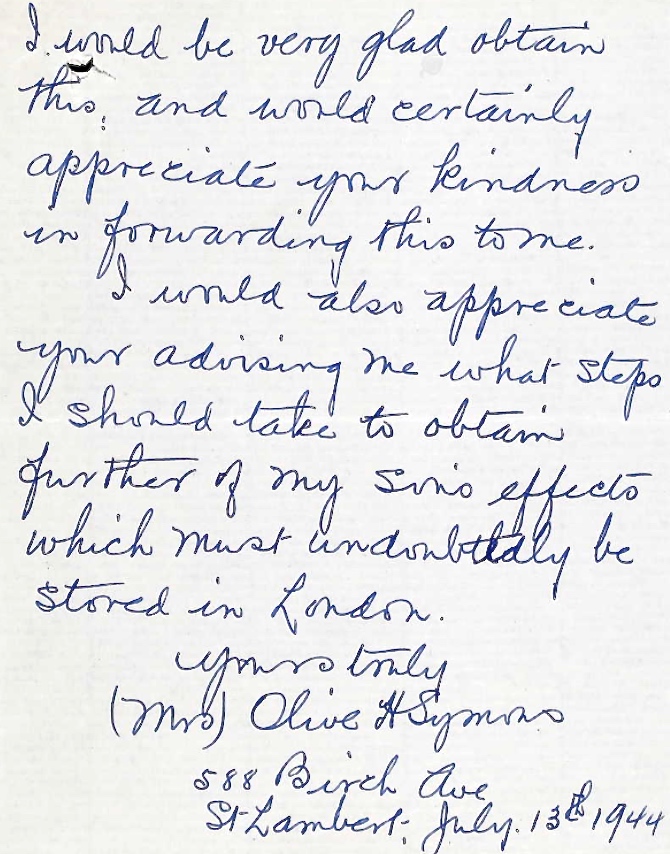 I would be very glad obtain
this, and would certainly
appreciate your kindness
in forwarding this to me.
I would also appreciate
your advising me what steps
I should take to obtain
further of my son's effects
which must undoubtedly be
stored in London.
yours truly
(Mrs) Olive H Symons
588 Birch Ave
St Lambert, July. 13th 1944